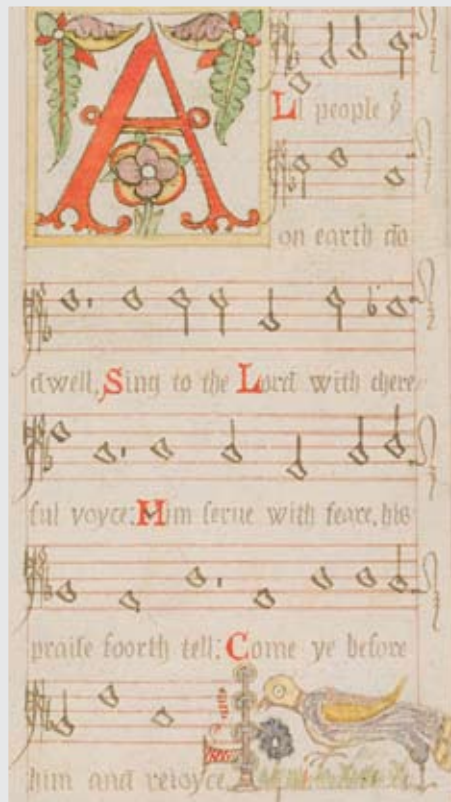 ALl people þͭ
on earth do
dwell, Sing to the Lord with chere
ful voyce; Him serue with feare, his
praise foorth tell; Come ye before
him and reioyce